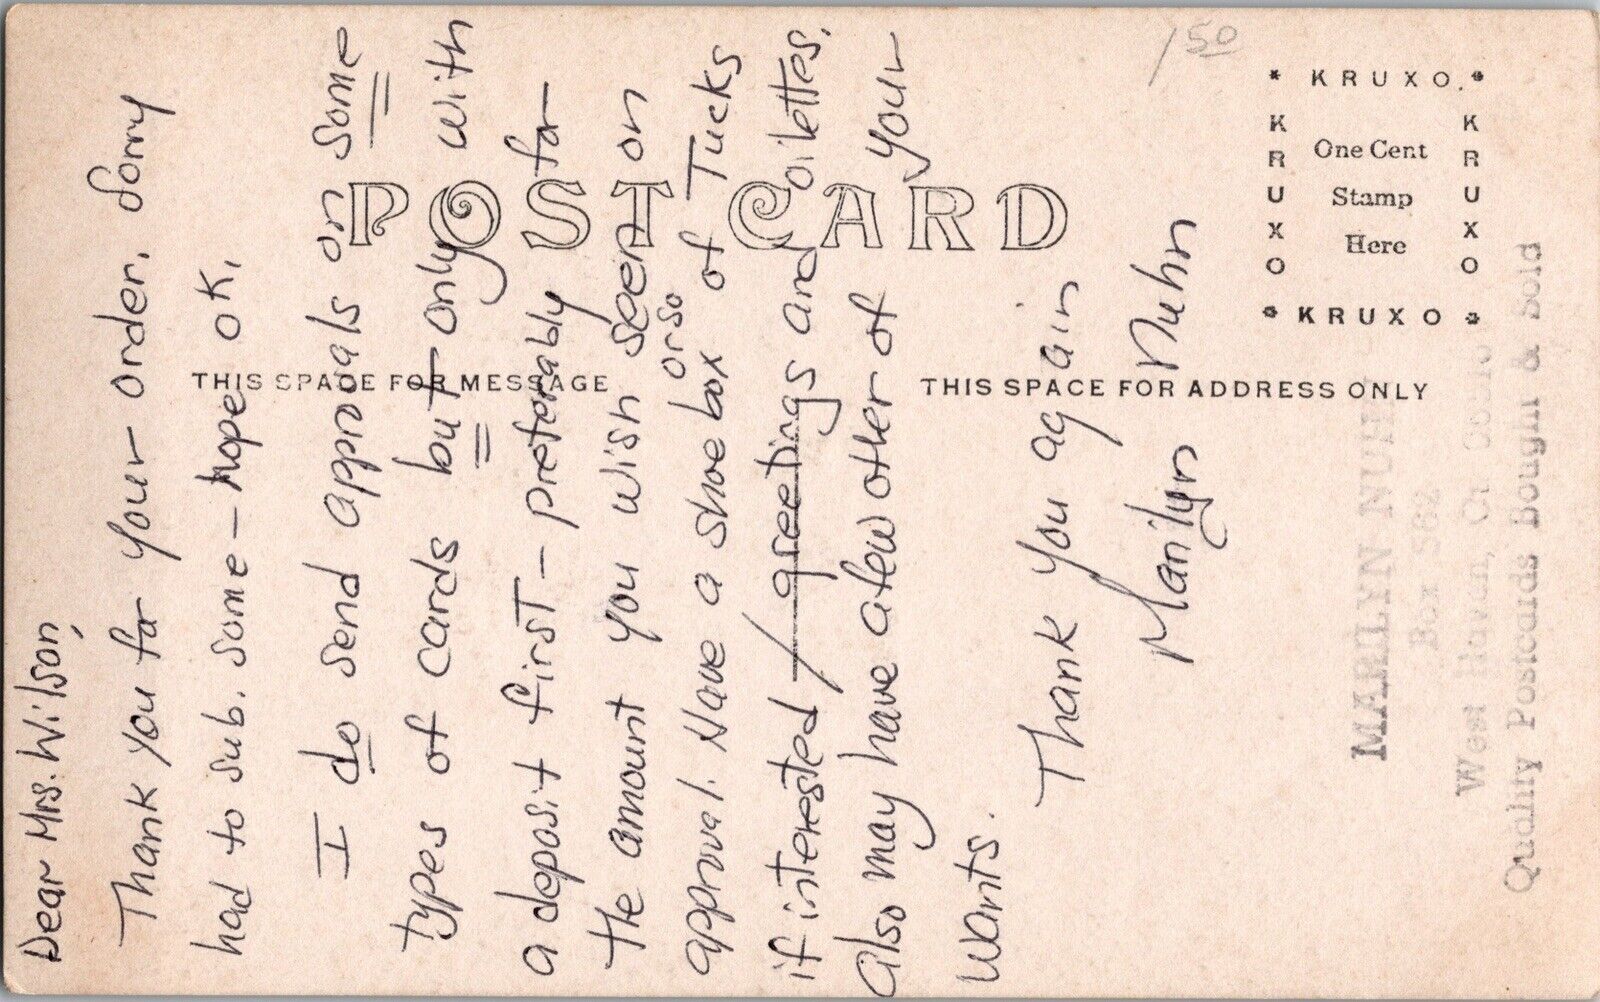 Dear Mrs. Wilson,
Thank you for your order. Sorry
had to sub. some - hope OK.
I do send approvals on some
types of cards but only with
a deposit first - preferably for
the amount you wish seen on
approval. Have a shoe box orso of Tucks
if interested / greetings and oilettes.
Also may have a few other of your
wants.
Thank you again
Marilyn Nuhn
1 50
POST CARD
THIS SPACE FOR MESSAGE
THIS SPACE FOR ADDRESS ONLY
* KRUXO *
KRUXO
One Cent
Stamp
Here
KRUXO
* KRUXO *
MARILYN NUH
Box 562
West Haven, Ct.
Quality Postcards Bought & Sold